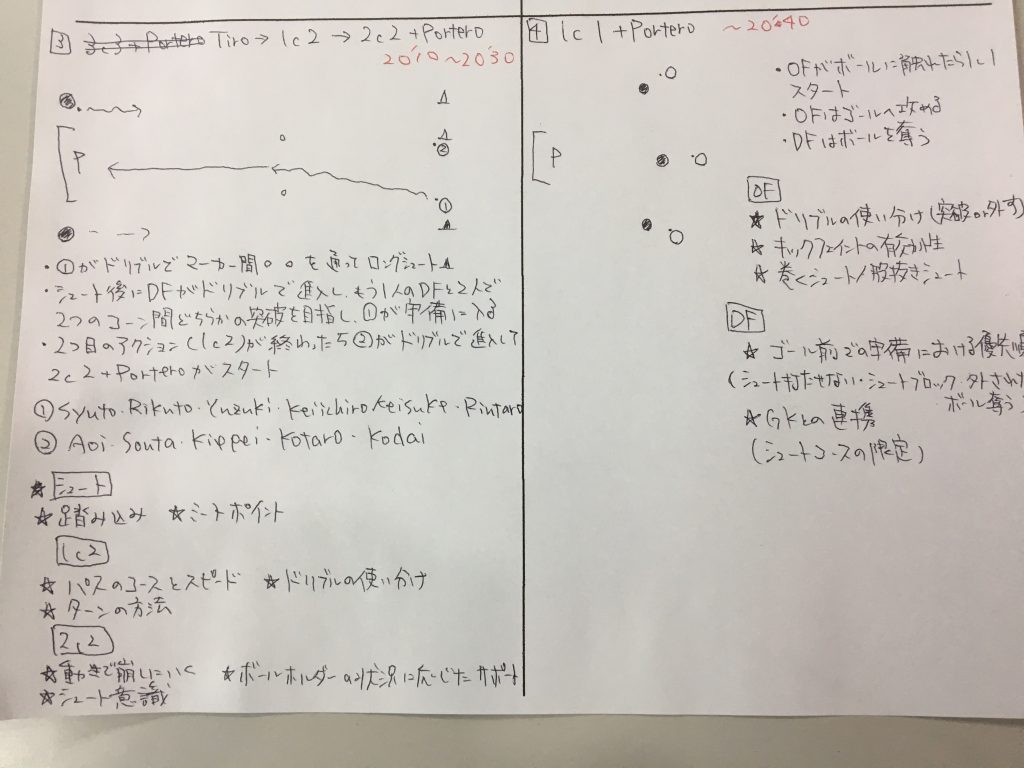 3 3c3+Portero Tiro→1c2→2c2+Portero
20'10~20'30
P
②
①
・①がドリブルでマーカー間○ ○を通ってロングシュート
・シュート後にDFがドリブルで進入し、もう1人のDFと2人で
2つのコーン間どちらかの突破を目指し、①が守備に入る
・2つ目のアクション(1c2)が終わったら②がドリブルで進入して
2c2+Porteroがスタート
① Syuto・Rikuto・Yuzuki・Keiichiro Keisuke・Rintaro
② Aoi・Souta・Kippei・Kotaro・Kodai
★シュート
★踏み込み ★ミートポイント
1c2
★パスのコースとスピード ★ドリブルの使い分け
★ターンの方法
2c2
★動きで崩しにいく ★ボールホルダーの状況に応じたサポート
★シュート意識
4 1c1+Portero ~20'40
P
・OFがボールに触れたら1c1
スタート
・OFはゴールへ攻める
・DFはボールを奪う
OF
★ドリブルの使い分け(突破or外す)
★キックフェイントの有効性
★巻くシュート/股抜きシュート
DF
★ゴール前での守備における優先順
(シュート打たせない・シュートブロック・外された
ボール奪う
★GKとの連携
(シュートコースの限定)